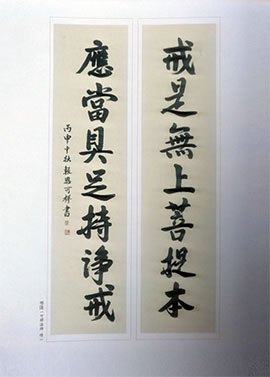 戒是無上菩提本
應當具足持淨戒
丙申中秋
可祥書